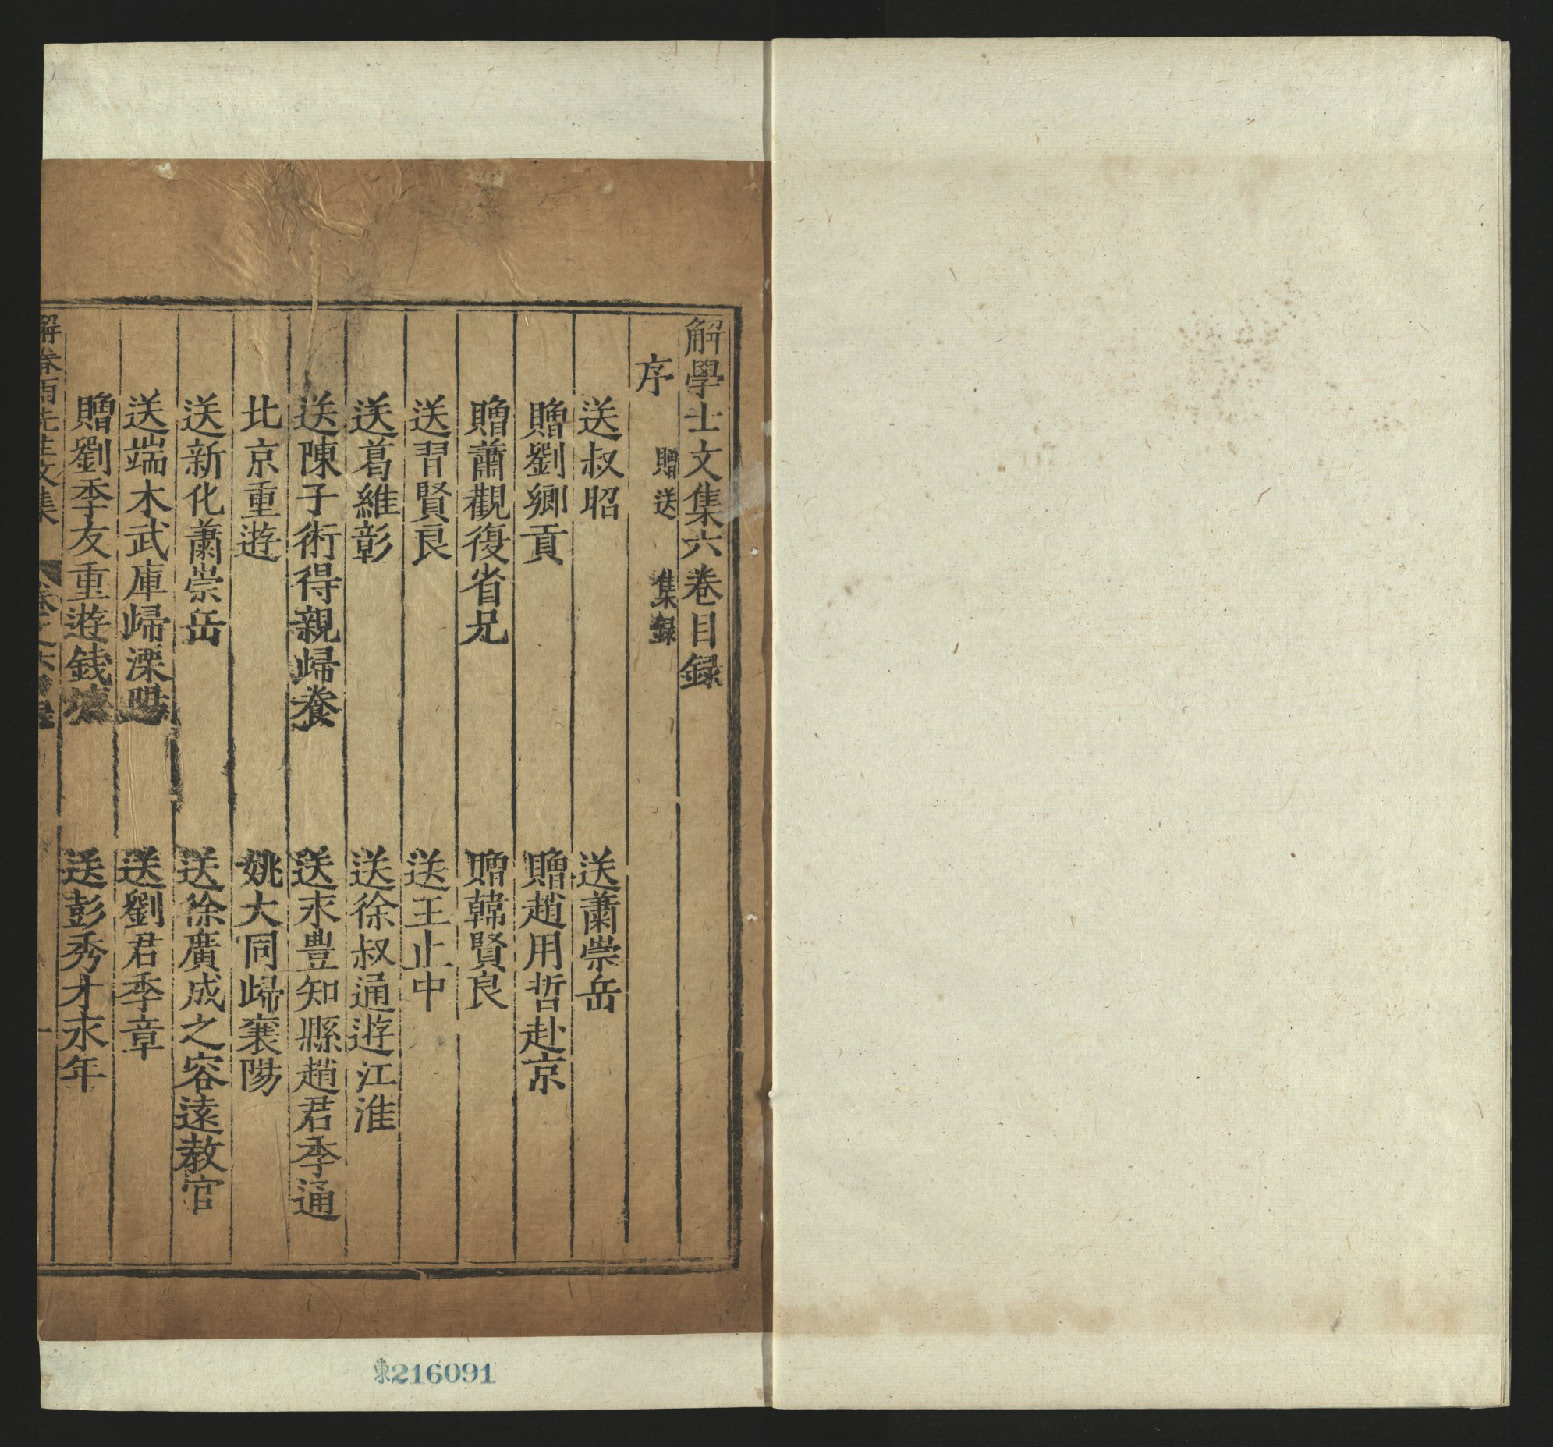 解學士文集六卷目録
序 贈送 集録
送叔昭 送蕭崇岳
贈劉卿貢 贈趙用哲赴京
贈蕭觀復省兄 贈韓賢良
送習賢良 送王止中
送葛維彰 送徐叔通遊江淮
送陳子術得親歸養 送永豊知縣趙君季通
北京重遊 姚大同歸襄陽
送新化蕭崇岳 送徐廣成之容遠教官
送端木武庫歸溧陽 送劉君季章
贈劉季友重遊錢塘 送彭秀才永年
解春雨先生文集 卷之六
216091